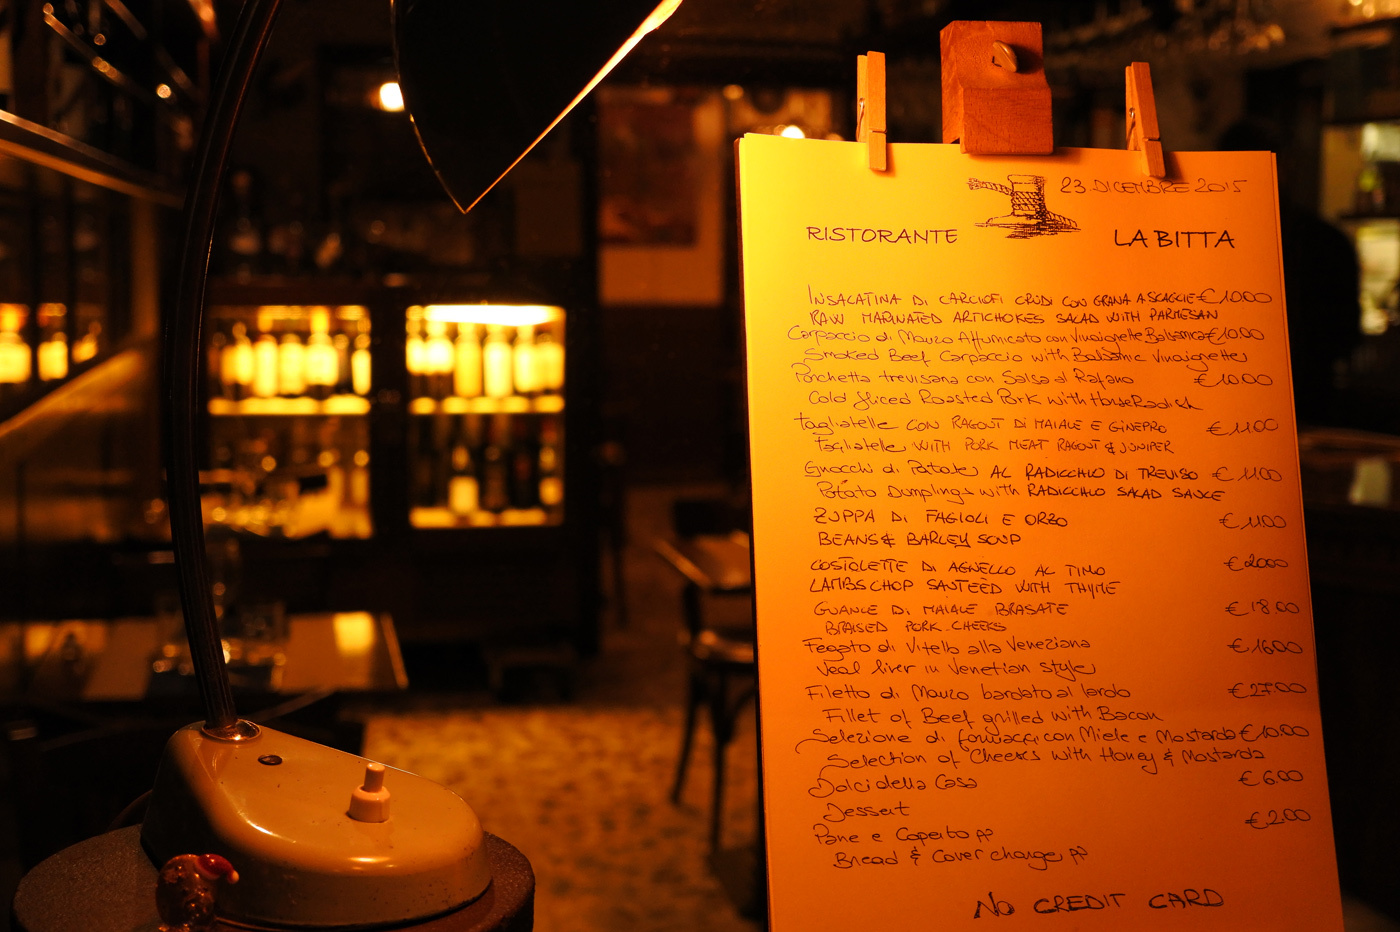 23 DICEMBRE 2015
RISTORANTE LA BITTA
INSALATINA DI CARCIOFI CRUDI CON GRANA A SCAGLIE € 10.00
RAW MARINATED ARTICHOKES SALAD WITH PARMESAN
Carpaccio di Manzo Affumicato con Vinaigrette Balsamica € 10.00
Smoked Beef Carpaccio with Balsamic Vinaigrette
Porchetta trevisana con Salsa al Rafano € 10.00
Cold Sliced Roasted Pork with HorseRadish
Tagliatelle CON RAGOUT DI MAIALE E GINEPRO € 11.00
Tagliatelle WITH PORK MEAT RAGOUT & JUNIPER
Gnocchi di Patate AL RADICCHIO DI TREVISO € 11.00
Potato Dumplings with RADICCHIO SALAD SAUCE
ZUPPA DI FAGIOLI E ORZO € 11.00
BEANS & BARLEY SOUP
COSTOLETTE DI AGNELLO AL TIMO € 20.00
LAMBS CHOP SANTEED WITH THYME
GUANCE DI MAIALE BRASATE € 18.00
BRAISED PORK CHEEKS
Fegato di Vitello alla Veneziana € 16.00
Veal liver in Venetian style
Filetto di Manzo bardato al lardo € 27.00
Fillet of Beef grilled with Bacon
Selezione di formaggi con Miele e Mostarda € 10.00
Selection of Cheeses with Honey & Mostarda
Dolci della Casa € 6.00
Dessert
Pane e Coperto PP € 2.00
Bread & Cover charge PP
NO CREDIT CARD